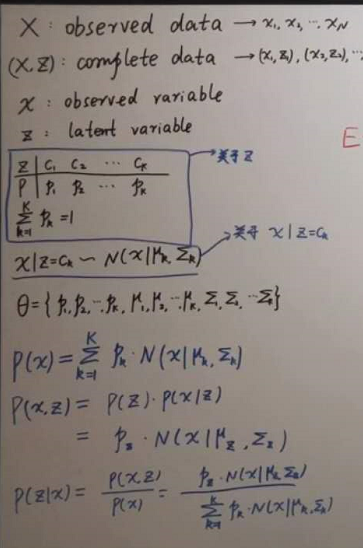 X : observed data → x₁, x₂, ... x_N
(X, Z) : complete data → (x₁, z₁), (x₂, z₂), ...
x : observed variable
z : latent variable
E
z | C₁ C₂ ... C_K
P | p₁ p₂ ... p_K
关于 z
∑_{k=1}^{K} p_k = 1
x|z=C_k ~ N(x|μ_k, Σ_k)
关于 x|z=C_k
θ = { p₁, p₂, ... p_K, μ₁, μ₂, ... μ_K, Σ₁, Σ₂, ... Σ_K }
P(x) = ∑_{k=1}^{K} p_k · N(x|μ_k, Σ_k)
P(x,z) = P(z) · P(x|z)
= p_z · N(x|μ_z, Σ_z)
P(z|x) = P(x,z) / P(x) = p_z · N(x|μ_z, Σ_z) / ∑_{k=1}^{K} p_k · N(x|μ_k, Σ_k)